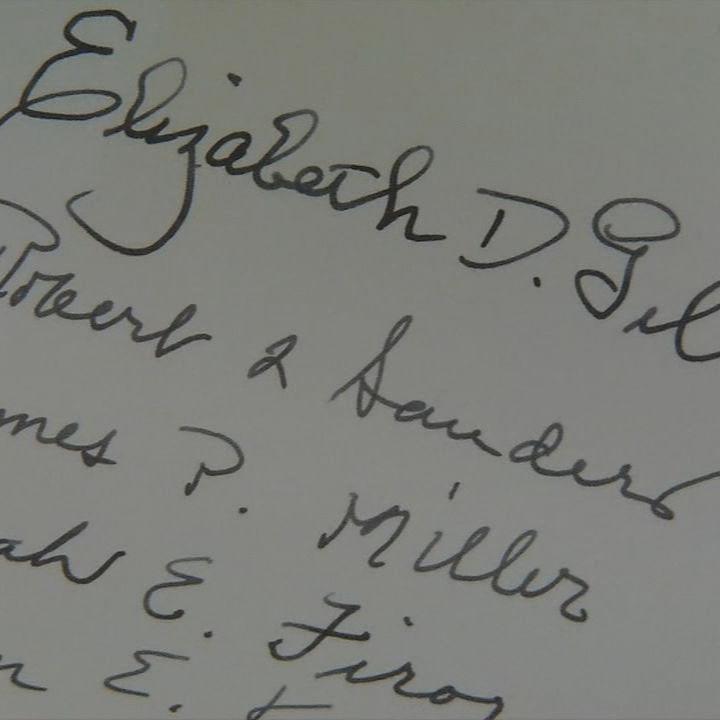 Elizabeth D. Gil
Robert & Sanders
mes P. Miller
ah E. Firo
n E.